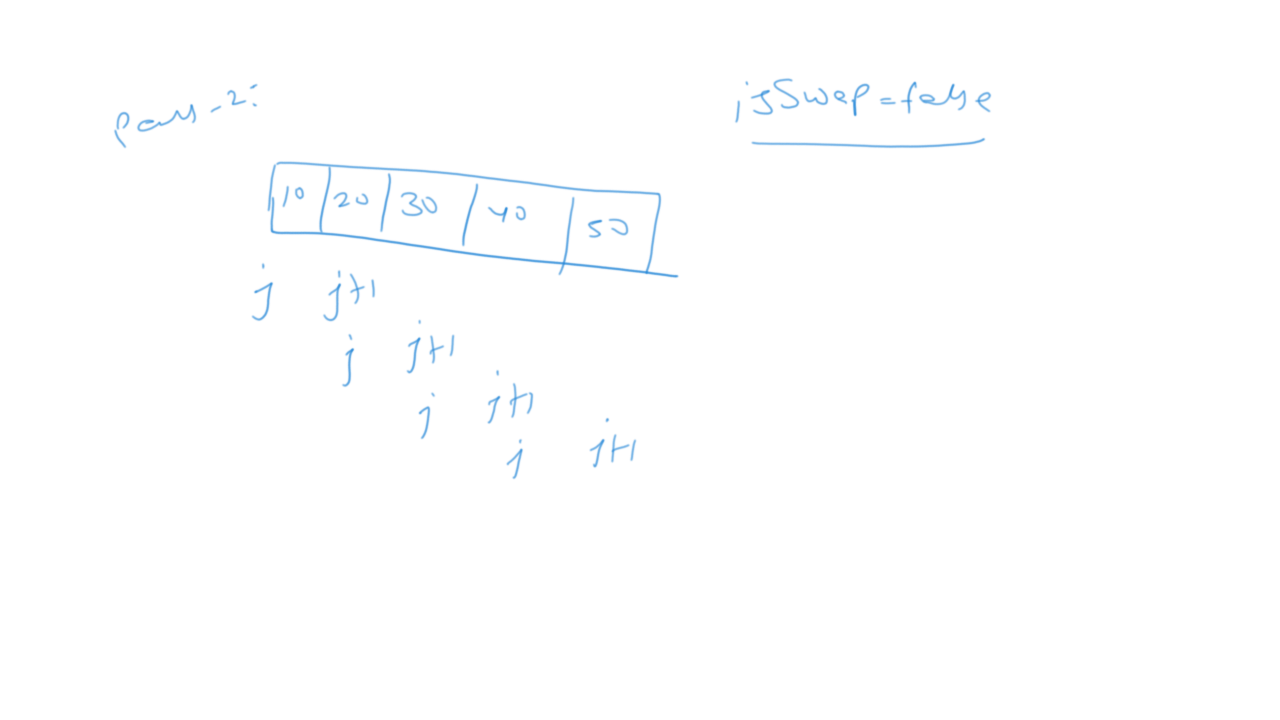 Pass-2:
isSwap=false
10 20 30 40 50
j j+1
j j+1
j j+1
j j+1